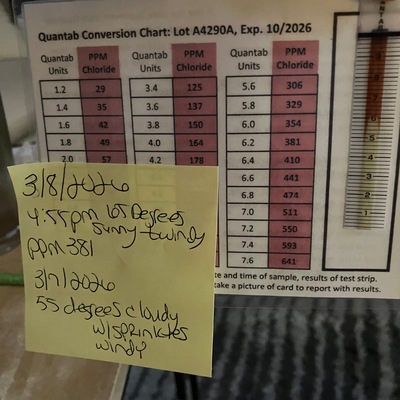 Quantab Conversion Chart: Lot A4290A, Exp. 10/2026
Quantab Units PPM Chloride Quantab Units PPM Chloride Quantab Units PPM Chloride
1.2 29 3.4 125 5.6 306
1.4 35 3.6 137 5.8 329
1.6 42 3.8 150 6.0 354
1.8 49 4.0 164 6.2 381
2.0 57 4.2 178 6.4 410
6.6 441
6.8 474
7.0 511
7.2 550
7.4 593
7.6 641
te and time of sample, results of test strip.
take a picture of card to report with results.
3/8/2026
4:55pm 65 Degrees
sunny + windy
ppm 381
3/7/2026
55 degrees cloudy
w/sprinkles
windy
9
8
7
6
5
4
3
2
1